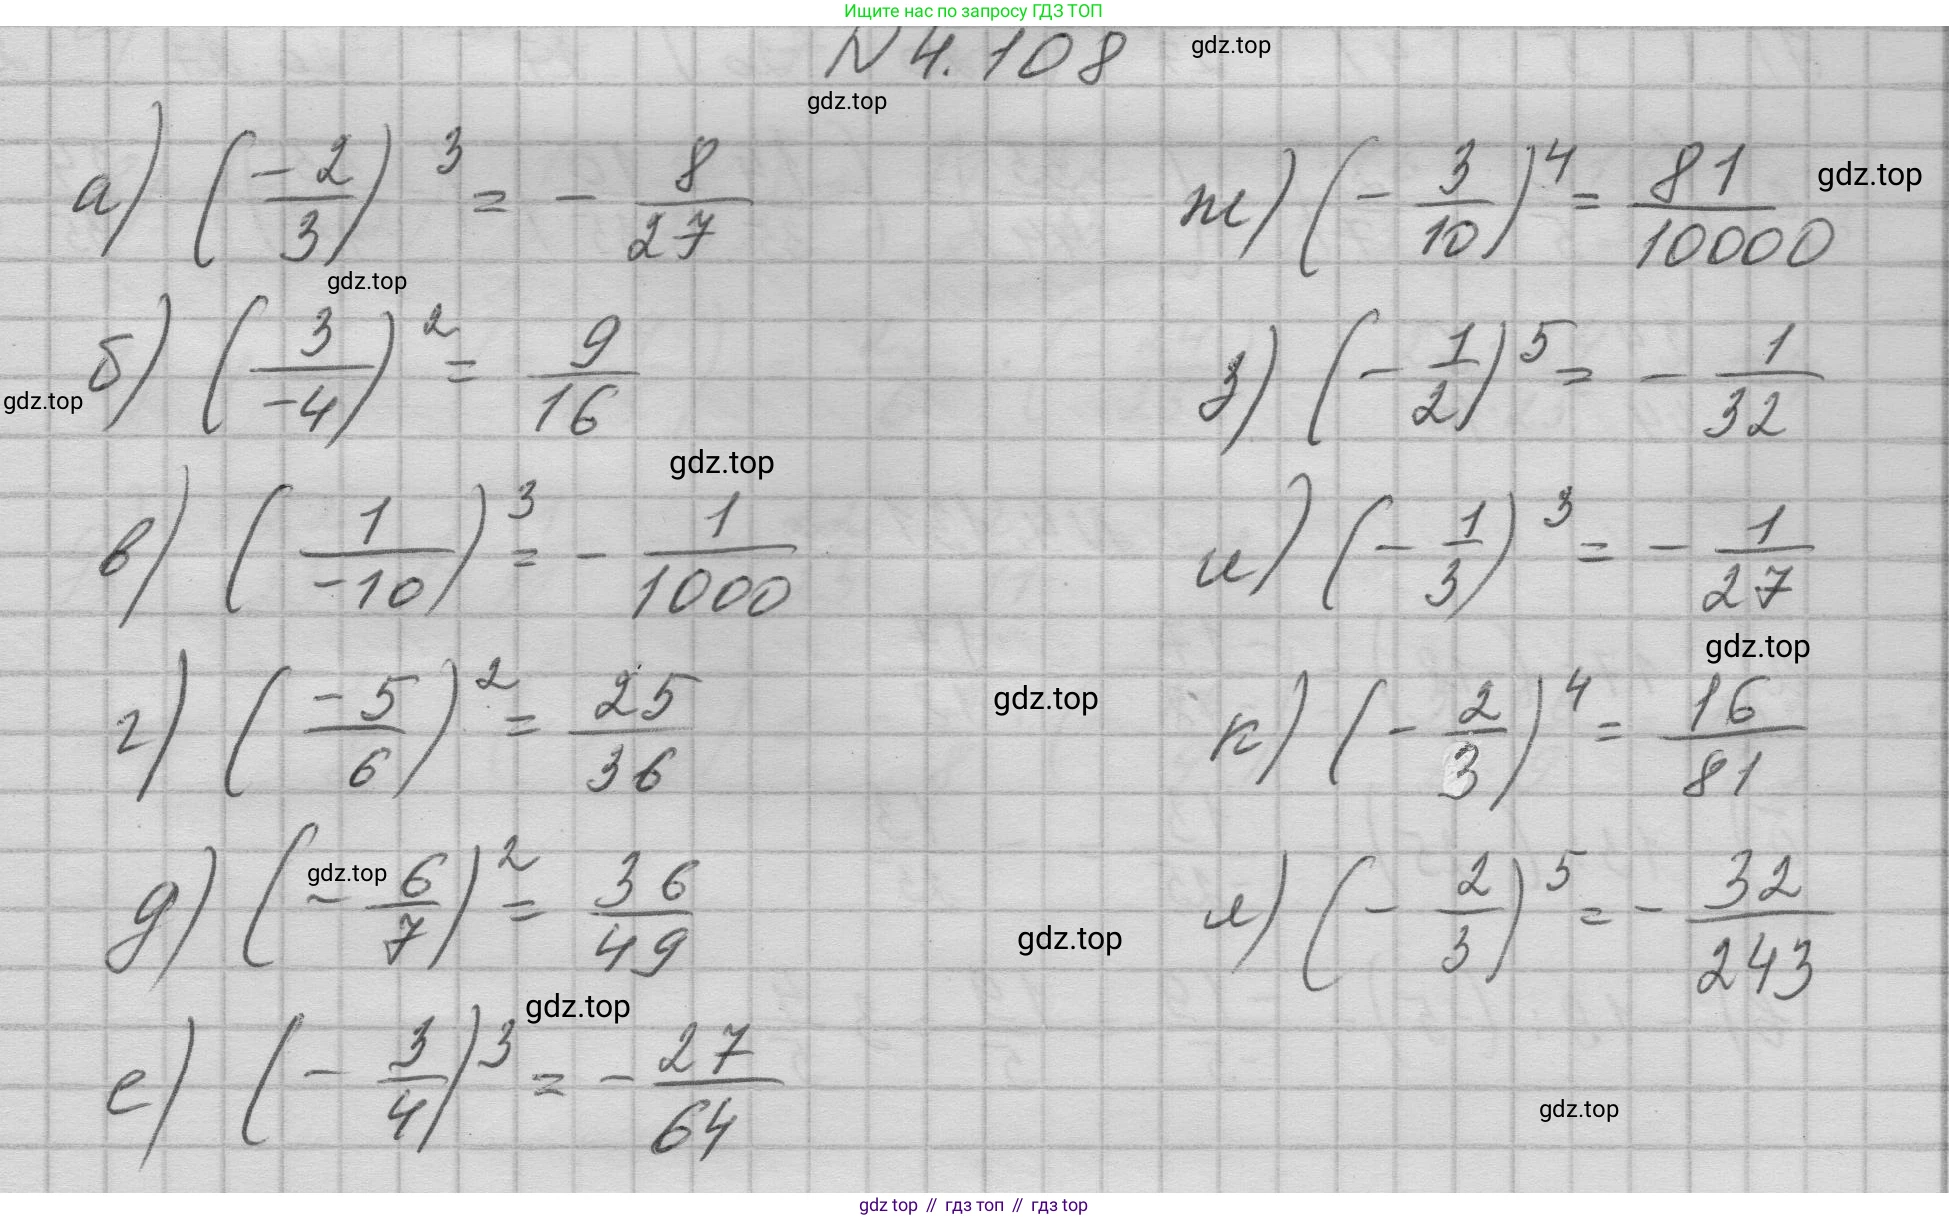 Ищите нас по запросу ГДЗ ТОП
N 4.108
gdz.top
gdz.top
а) (-2/3)^3 = - 8/27
gdz.top
б) (3/-4)^2 = 9/16
gdz.top
gdz.top
в) (1/-10)^3 = - 1/1000
г) (-5/6)^2 = 25/36
gdz.top
д) (- 6/7)^2 = 36/49
gdz.top
gdz.top
gdz.top
е) (- 3/4)^3 = - 27/64
ж) (- 3/10)^4 = 81/10000
gdz.top
з) (- 1/2)^5 = - 1/32
и) (- 1/3)^3 = - 1/27
gdz.top
к) (- 2/3)^4 = 16/81
л) (- 2/3)^5 = - 32/243
gdz.top
gdz top // гдз топ // гдз top